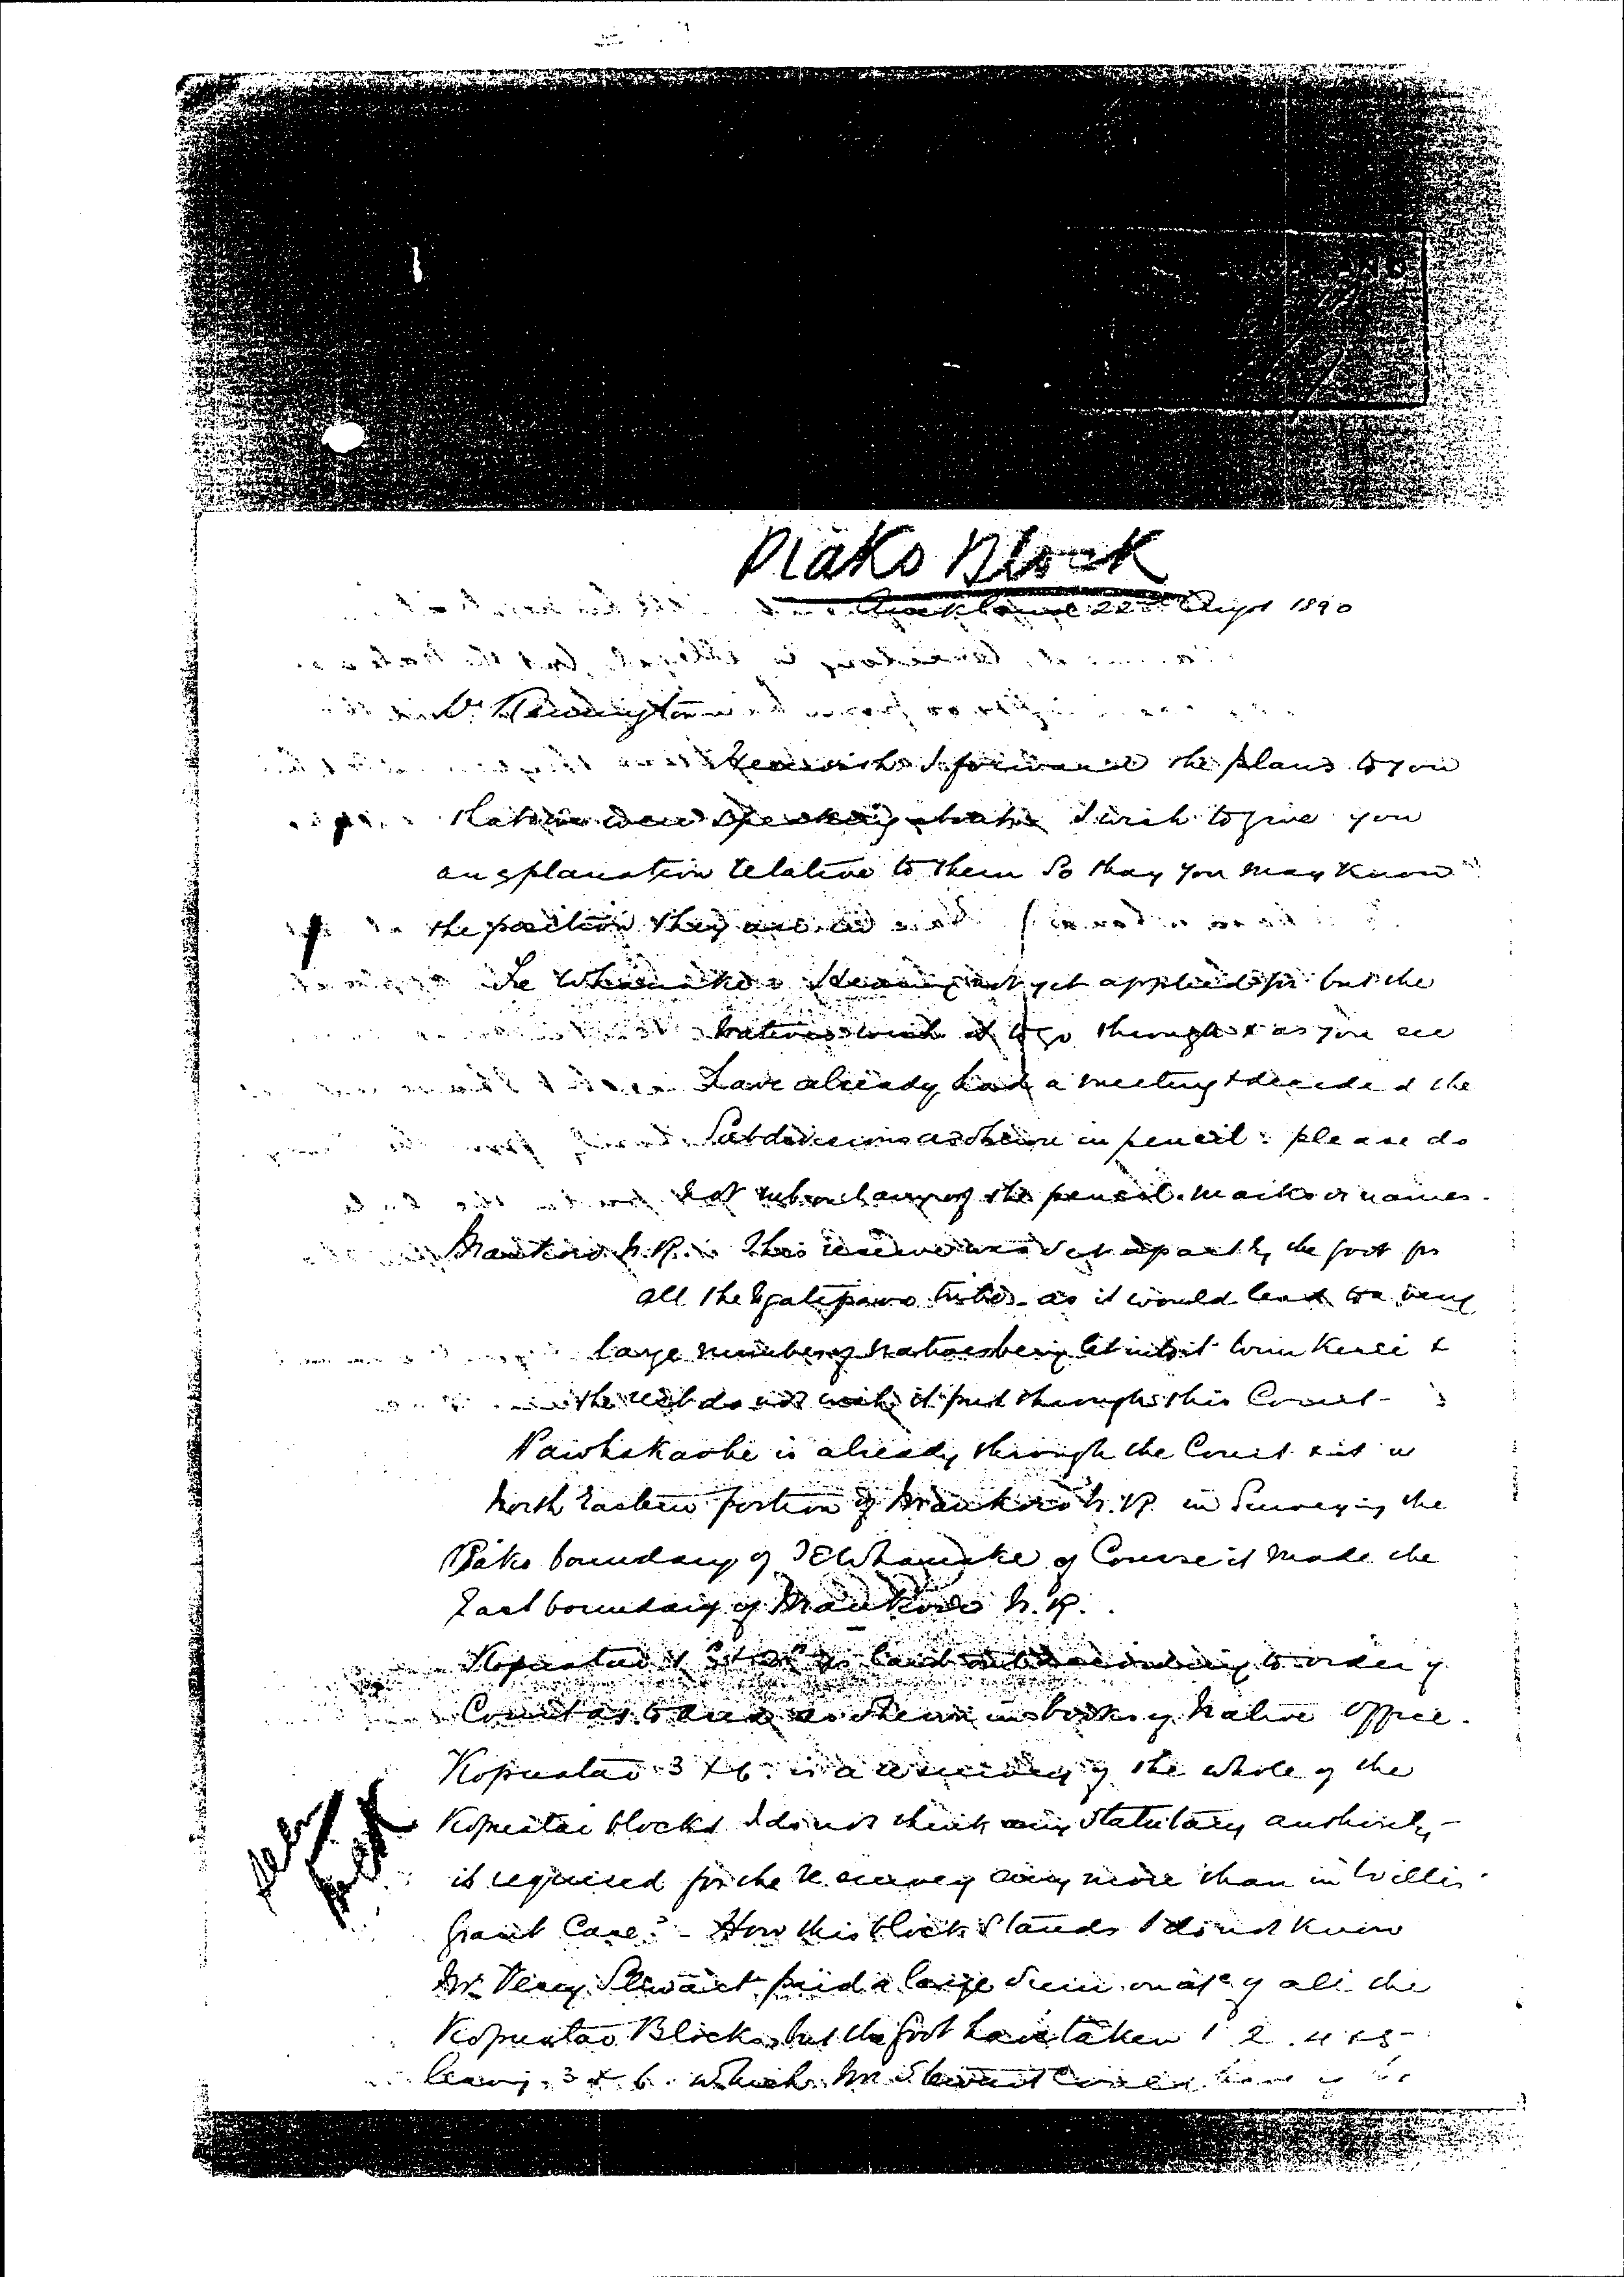 Piako Block
Auckland 22nd Augst 1890
Mr Kensington
Herewith I forward the plans to you
that we were speaking about. I wish to give you
an explanation relative to them so thay you may know
the position they are in
Te Whanake. Hearing not yet applied for but the
natives wish it to go through & as you see
have already had a meeting & decided the
Subdivisions as shewn in pencil. please do
not rub out any of the pencil marks or names.
Maukoro N.R. This reserve was set apart by the govt for
all the Ngatipaoa tribe. as it would lead to a very
large number of natives being let into it &
the rest do not wish it put through this Court
Pawhakaohe is already through the Court & is
North Eastern portion of Maukoro N.R. in Surveying the
Piako boundary of Te Whanake of Course it made the
East boundary of Maukoro N.R.
Kopuatai 1 land according to order of
Court as shewn in books of Native Office.
Kopuatai 3 & 6. is a resurvey of the whole of the
Kopuatai blocks I do not think any Statutary authority
is required for the resurvey any more than in Willis
Grant Case? - How this block stands I do not know
Mr Percy Stewart paid a large sum on a/c of all the
Kopuatai Blocks, but the govt have taken 1 2. 4 & 5
leaving 3 & 6. which Mr Stewart